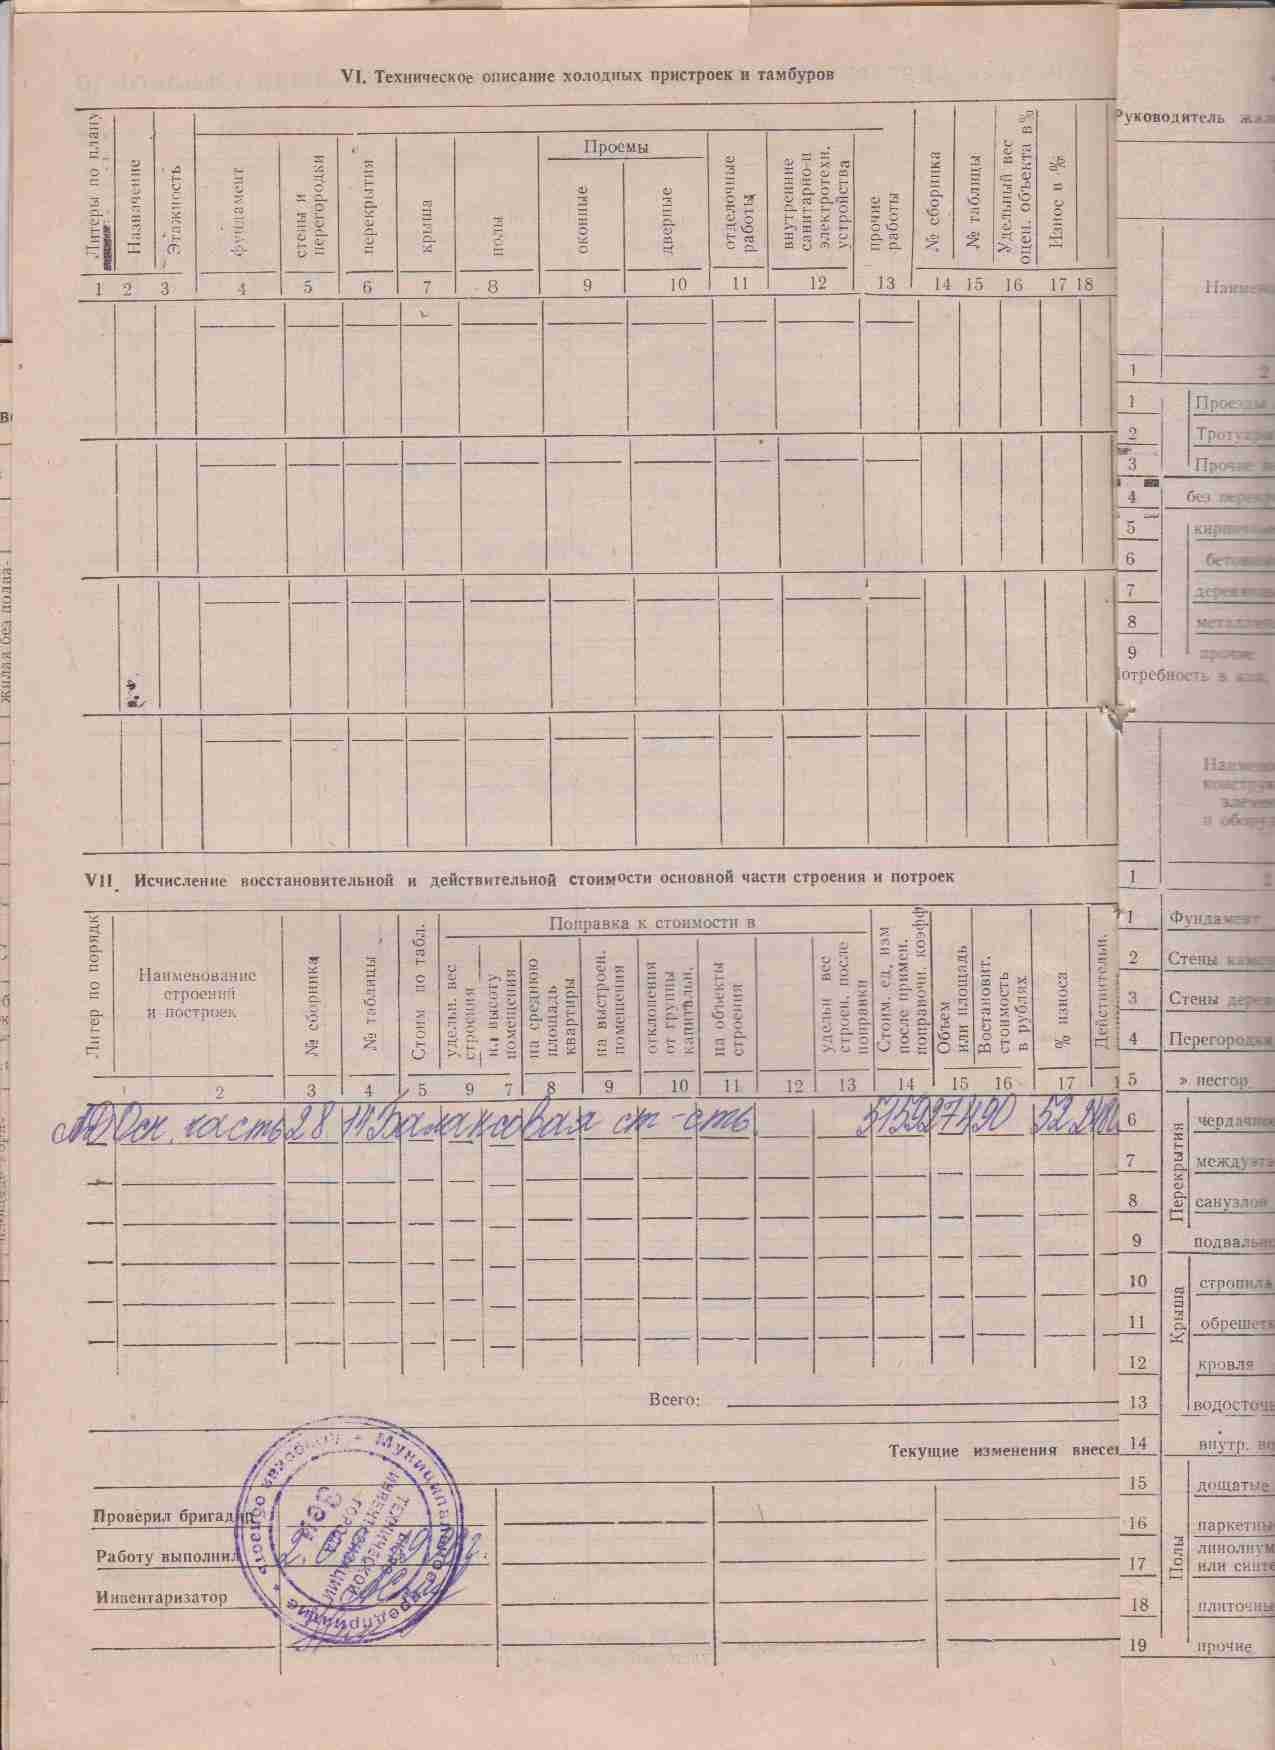 VI. Техническое описание холодных пристроек и тамбуров
Литеры по плану
Назначение
Этажность
фундамент
стены и перегородки
перекрытия
крыша
полы
Проемы
оконные
дверные
отделочные работы
внутренние санитарно-и электротехн. устройства
прочие работы
№ сборника
№ таблицы
Удельный вес оцен. объекта в %
Износ в %
1 2 3 4 5 6 7 8 9 10 11 12 13 14 15 16 17 18
VII. Исчисление восстановительной и действительной стоимости основной части строения и потроек
Литер по порядк
Наименование строений и построек
№ сборника
№ таблицы
Стоим по табл.
Поправка к стоимости в
удельн. вес строения
на высоту помещения
на среднюю площадь квартиры
на выстроен. помещения
отклонения от группы капитальн.
на объекты строения
удельн вес строен. после поправки
Стоим. ед, изм после примен. поправочн. коэфф
Объем или площадь
Востановит. стоимость в рублях
% износа
Действительн.
1 2 3 4 5 9 7 8 9 10 11 12 13 14 15 16 17 1
Осн. часть 28 14 Балансовая ст-сть
Всего:
Текущие изменения внесе
Проверил бригадир
Работу выполнил
Инвентаризатор
Муниципальное предприятие
БЮРО ТЕХНИЧЕСКОЙ ИНВЕНТАРИЗАЦИИ
Руководитель
Наимено
1 2
1 Проезды
2 Тротуары
3 Прочие
4 без перекр
5 кирпичные
6 бетонные
7 деревянные
8 металлич
9 прочие
Потребность в
Наимено
конструк
элемен
и оборуд
1
1 Фундамент
2 Стены камен
3 Стены дерев
4 Перегородки
5 » несгор
Перекрытия
6 чердачное
7 междуэта
8 санузлов
9 подвально
Крыша
10 стропила
11 обрешетк
12 кровля
13 водосточн
14 внутр. во
Полы
15 дощатые
16 паркетны
17 линолиум
или синте
18 плиточны
19 прочие